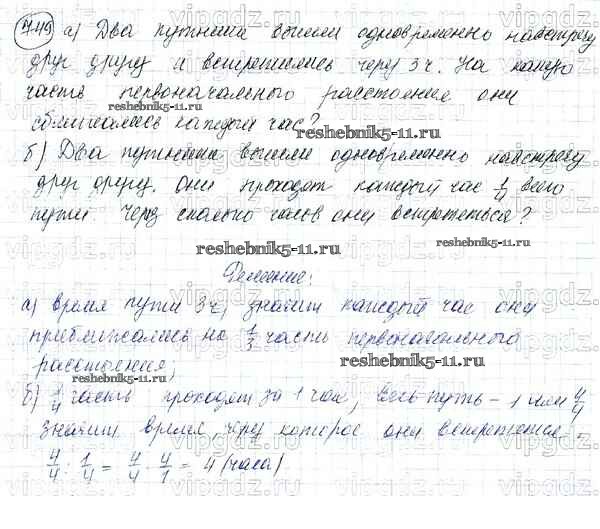 749 а) Два путника вышли одновременно навстречу
друг другу и встретились через 3 ч. На какую
часть первоначального расстояния они
reshebnik5-11.ru
сближались каждый час?
reshebnik5-11.ru
б) Два путника вышли одновременно навстречу
друг другу. Они проходят каждый час 1/4 всего
пути. Через сколько часов они встретяться?
reshebnik5-11.ru
reshebnik5-11.ru
Решение:
а) время пути 3 ч, значит каждый час они
reshebnik5-11.ru
приближались на 1/3 часть первоначального
расстояния;
reshebnik5-11.ru
reshebnik5-11.ru
б) 1/4 часть проходят за 1 час, весь путь - 1 или 4/4
значит время, через которое они встретятся
4/4 : 1/4 = 4/4 · 4/1 = 4 (часа)